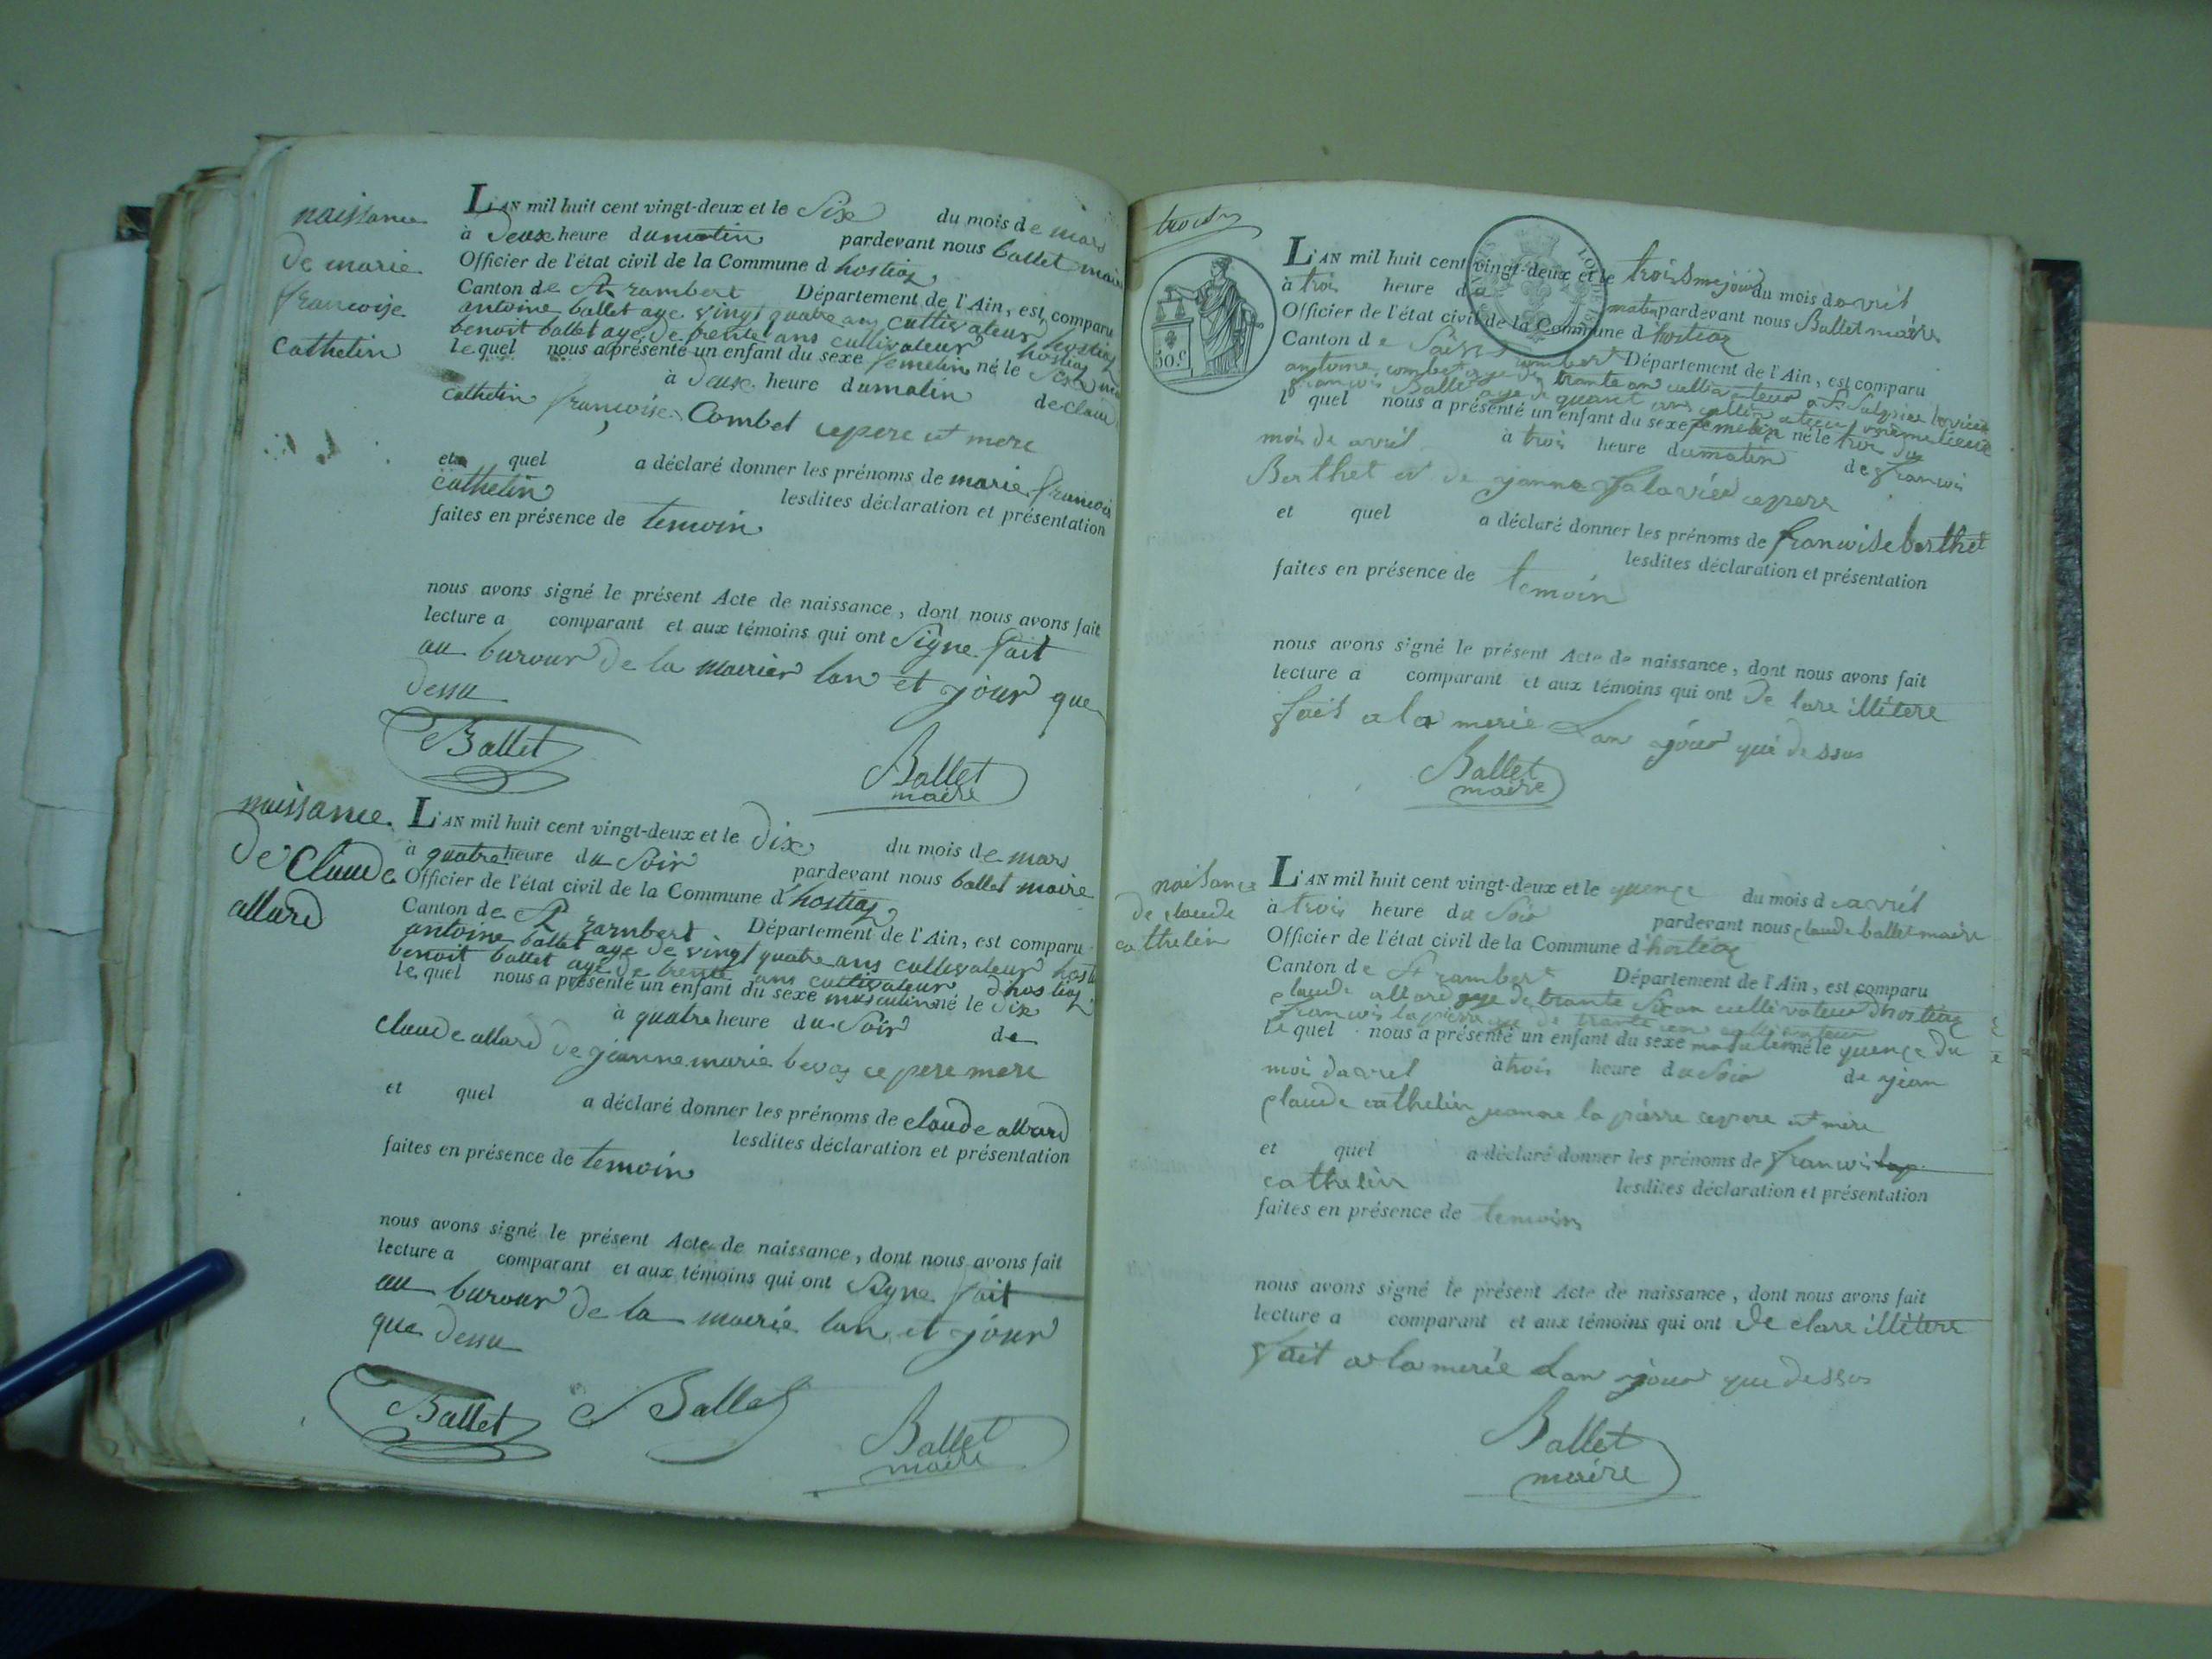 naissance
de marie
francoise
Cathelin
L'AN mil huit cent vingt-deux et le Six du mois de mars
à deux heure du matin pardevant nous ballet maire
Officier de l'état civil de la Commune d hostiaz
Canton de St rambert Département de l'Ain, est comparu
antoine ballet age vingt quatre ans cultivateur hostiaz
benoit ballet age de trente ans cultivateur hostiaz
le quel nous a présenté un enfant du sexe femelin né le Six
à deux heure du matin de Claud
Cathelin francoise Combet ce pere et mere
et quel a déclaré donner les prénoms de marie francois
Cathelin lesdites déclaration et présentation
faites en présence de temoin
nous avons signé le présent Acte de naissance, dont nous avons fait
lecture a comparant et aux témoins qui ont Signe fait
au buroux de la mairier lan et jour que
dessu
Ballet
Ballet
maire
naissance
de Claude
allard
L'AN mil huit cent vingt-deux et le dix du mois de mars
à quatre heure du Soir pardevant nous ballet maire
Officier de l'état civil de la Commune d hostiaz
Canton de St rambert Département de l'Ain, est comparu
antoine ballet age de vingt quatre ans cultivateur
benoit ballet age de trente ans cultivateur dhostiaz
le quel nous a présenté un enfant du sexe masculin né le dix
à quatre heure du Soir de
Claude allard de jeanne marie bevoz ce pere mere
et quel a déclaré donner les prénoms de claude allard
lesdites déclaration et présentation
faites en présence de temoin
nous avons signé le présent Acte de naissance, dont nous avons fait
lecture a comparant et aux témoins qui ont Signe fait
au buroux de la mairie lan et jour
que dessu
Ballet Ballet
Ballet
maire
50 c
L'AN mil huit cent vingt-deux et le trois du mois davril
à trois heure du matin pardevant nous Ballet maire
Officier de l'état civil de la Commune d hostiaz
Canton de Département de l'Ain, est comparu
antoine combet age de trante an
francois Ballet age de quarant ans
l quel nous a présenté un enfant du sexe femelin né le troi du
mois de avril à trois heure du matin de francois
Berthet et de ce pere
et quel a déclaré donner les prénoms de francoise berthet
lesdites déclaration et présentation
faites en présence de temoin
nous avons signé le présent Acte de naissance, dont nous avons fait
lecture a comparant et aux témoins qui ont De lare illétere
fait a la merie Lan ajour que dessus
Ballet
maire
naisance
de claude
cathelin
L'AN mil huit cent vingt-deux et le quenze du mois d avril
à trois heure du Soir pardevant nous claude ballet maire
Officier de l'état civil de la Commune d hostiaz
Canton de St rambert Département de l'Ain, est comparu
claude allard age de trante Six an cultivateur dhostiaz
francois la pierre age de trante an cultivateur
le quel nous a présenté un enfant du sexe né le quenze du
mois davril à trois heure du Soir de jean
claude cathelin jeanne la pierre ce pere et mere
et quel a déclaré donner les prénoms de francois
cathelin lesdites déclaration et présentation
faites en présence de temoins
nous avons signé le présent Acte de naissance, dont nous avons fait
lecture a comparant et aux témoins qui ont De clare illétere
fait a la merie Lan ajour que dessus
Ballet
maire